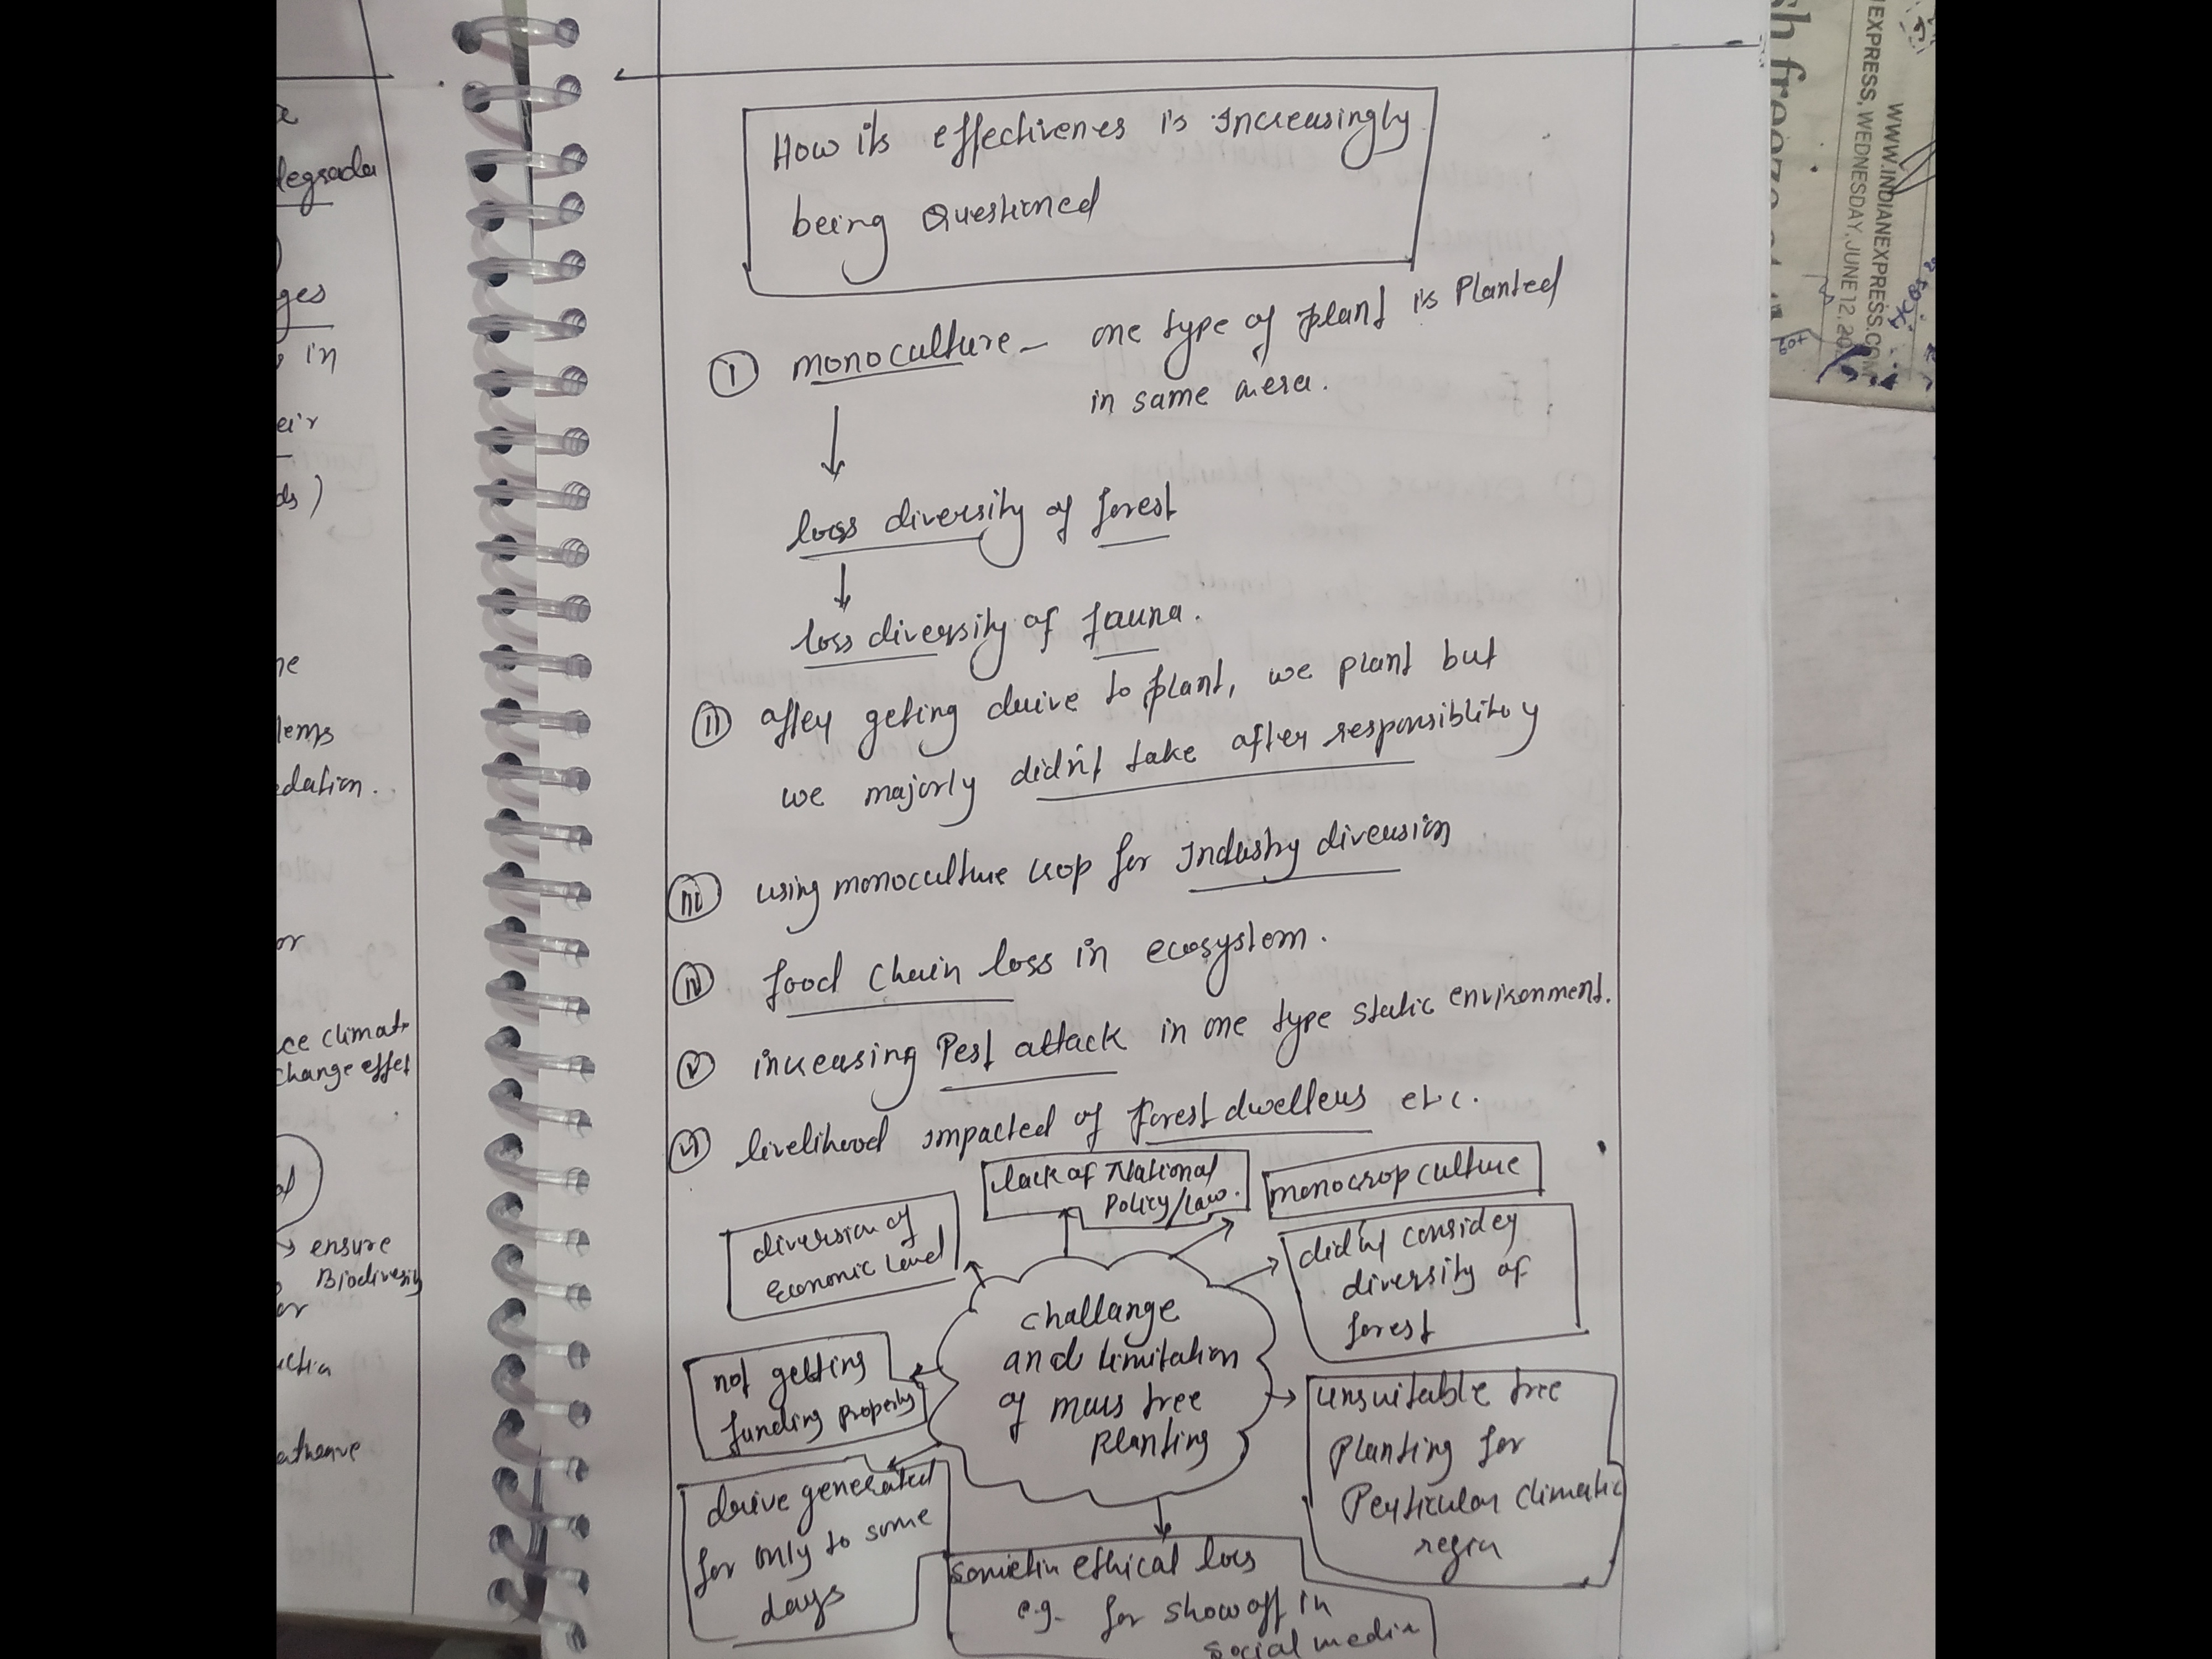 degrada
ges
in
eir
ds)
ne
lems
edation.
or
ce climat
change effet
→ ensure
Biodiversity
or
uctia
How its effectivenes is Increasingly
being Questioned
(I) monoculture – one type of plant is Planted
in same area.
↓
loss diversity of forest
↓
loss diversity of fauna.
(II) after geting drive to plant, we plant but
we majorly didn't take after responsiblitoy
(III) using monoculture crop for Industry diversion
(IV) food Chain loss in ecosystem.
(V) increasing Pest attack in one type static environment.
(VI) livelihood impacted of forest dwellers etc.
lack of National
Policy/Law.
monocrop culture
diversion of
Economic Level
did'nt consider
diversity of
forest
challange
and limitation
of mass tree
Planting
not getting
funding Properly
unsuitable tree
Planting for
Perticular climatic
region
drive generated
for only to some
days
ethical loss
e.g. for show off in
social media
WWW.INDIANEXPRESS.COM
EXPRESS, WEDNESDAY, JUNE 12, 20
sh freeze